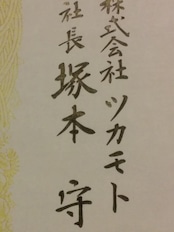 株式会社 ツカモト
社長 塚本 守